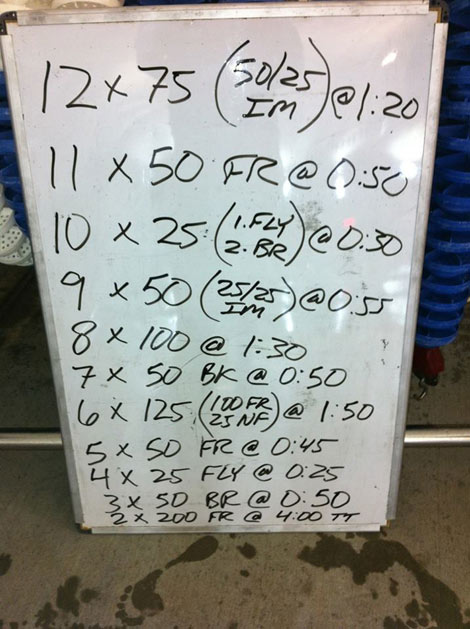 12 x 75 (50/25 IM) @ 1:20
11 x 50 FR @ 0:50
10 x 25 (1.FLY 2.BR) @ 0:30
9 x 50 (25/25 IM) @ 0:55
8 x 100 @ 1:30
7 x 50 BK @ 0:50
6 x 125 (100 FR 25 NF) @ 1:50
5 x 50 FR @ 0:45
4 x 25 FLY @ 0:25
3 x 50 BR @ 0:50
2 x 200 FR @ 4:00 TT